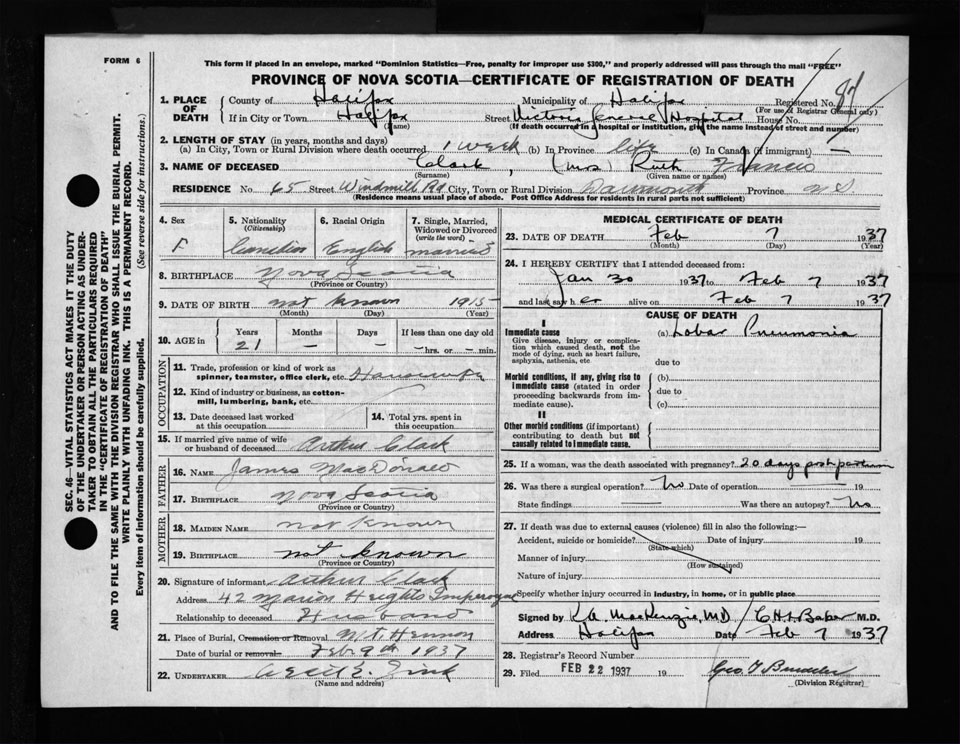 FORM 6
This form if placed in an envelope, marked "Dominion Statistics—Free, penalty for improper use $300," and properly addressed will pass through the mail "FREE"
PROVINCE OF NOVA SCOTIA—CERTIFICATE OF REGISTRATION OF DEATH
SEC. 46—VITAL STATISTICS ACT MAKES IT THE DUTY
OF THE UNDERTAKER OR PERSON ACTING AS UNDER-
TAKER TO OBTAIN ALL THE PARTICULARS REQUIRED
IN THE "CERTIFICATE OF REGISTRATION OF DEATH"
AND TO FILE THE SAME WITH THE DIVISION REGISTRAR WHO SHALL ISSUE THE BURIAL PERMIT.
WRITE PLAINLY WITH UNFADING INK. THIS IS A PERMANENT RECORD.
Every item of information should be carefully supplied. (See reverse side for instructions.)
1. PLACE OF DEATH
County of Halifax Municipality of Halifax Registered No. 87
(For use of Registrar General only)
If in City or Town Halifax Street Victoria General Hospital House No.
(Name) (If death occurred in a hospital or institution, give the name instead of street and number)
2. LENGTH OF STAY (in years, months and days)
(a) In City, Town or Rural Division where death occurred 1 week (b) In Province life (c) In Canada (if immigrant) —
3. NAME OF DECEASED Clark, (Mrs) Ruth Frances
(Surname) (Given name or names)
RESIDENCE No. 65 Street Windmill Rd City, Town or Rural Division Dartmouth Province N S
(Residence means usual place of abode. Post Office Address for residents in rural parts not sufficient)
4. Sex F
5. Nationality (Citizenship) Canadian
6. Racial Origin English
7. Single, Married, Widowed or Divorced (write the word) married
8. BIRTHPLACE Nova Scotia
(Province or Country)
9. DATE OF BIRTH not known 1915
(Month) (Day) (Year)
10. AGE in Years 21 Months — Days — If less than one day old —hrs. or — min.
OCCUPATION
11. Trade, profession or kind of work as spinner, teamster, office clerk, etc. Housewife
12. Kind of industry or business, as cotton-mill, lumbering, bank, etc.
13. Date deceased last worked at this occupation
14. Total yrs. spent in this occupation
15. If married give name of wife or husband of deceased Arthur Clark
FATHER
16. NAME James MacDonald
17. BIRTHPLACE Nova Scotia
(Province or Country)
MOTHER
18. MAIDEN NAME not known
19. BIRTHPLACE not known
(Province or Country)
20. Signature of informant Arthur Clark
Address 42 Marion Heights Imperoyal
Relationship to deceased Husband
21. Place of Burial, Cremation or Removal Mt. Hermon
Date of burial or removal Feb 9th 1937
22. UNDERTAKER
(Name and address)
MEDICAL CERTIFICATE OF DEATH
23. DATE OF DEATH Feb 7 1937
(Month) (Day) (Year)
24. I HEREBY CERTIFY that I attended deceased from:
Jan 30 1937 to Feb 7 1937
and last saw her alive on Feb 7 1937
CAUSE OF DEATH
I
Immediate cause
Give disease, injury or complication which caused death, not the mode of dying, such as heart failure, asphyxia, asthenia, etc
(a) Lobar Pneumonia
due to
Morbid conditions, if any, giving rise to immediate cause (stated in order proceeding backwards from immediate cause).
(b)
due to
(c)
II
Other morbid conditions (if important) contributing to death but not causally related to immediate cause.
25. If a woman, was the death associated with pregnancy? 20 days post partum
26. Was there a surgical operation? No Date of operation 19
State findings Was there an autopsy? No
27. If death was due to external causes (violence) fill in also the following:—
Accident, suicide or homicide? Date of injury 19
(State which)
Manner of injury
(How sustained)
Nature of injury
Specify whether injury occurred in industry, in home, or in public place
Signed by K.A. MacKenzie, M.D. / C.H. Baker M.D.
Address Halifax Date Feb 7 1937
28. Registrar's Record Number
29. Filed FEB 22 1937 19
(Division Registrar)